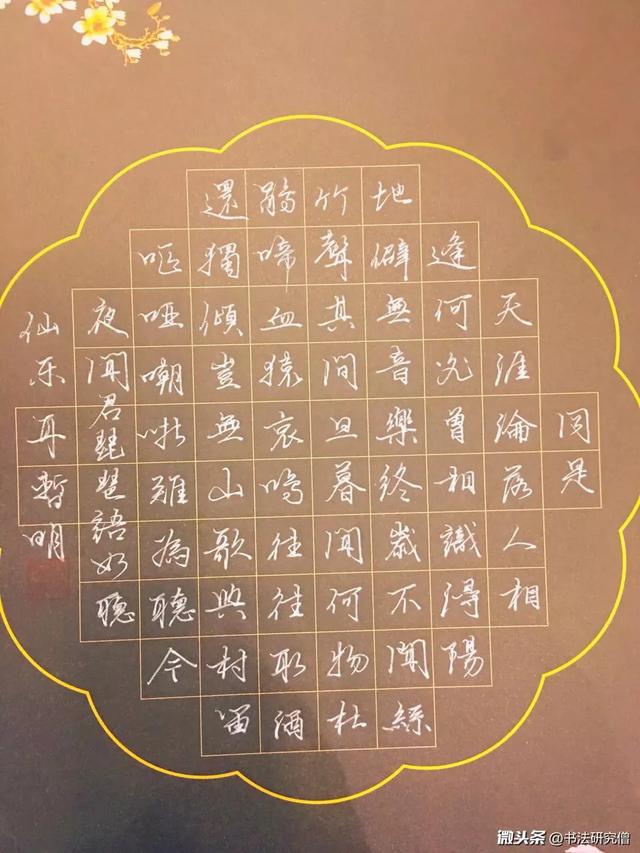 同是
天涯淪落人相
逢何必曾相識潯陽
地僻無音樂終歲不聞絲
竹聲其間旦暮聞何物杜
鵑啼血猿哀鳴往往取酒
還獨傾豈無山歌與村笛
嘔啞嘲哳難為聽今
夜聞君琵琶語如聽
仙乐耳暫明
微头条 @书法研究僧